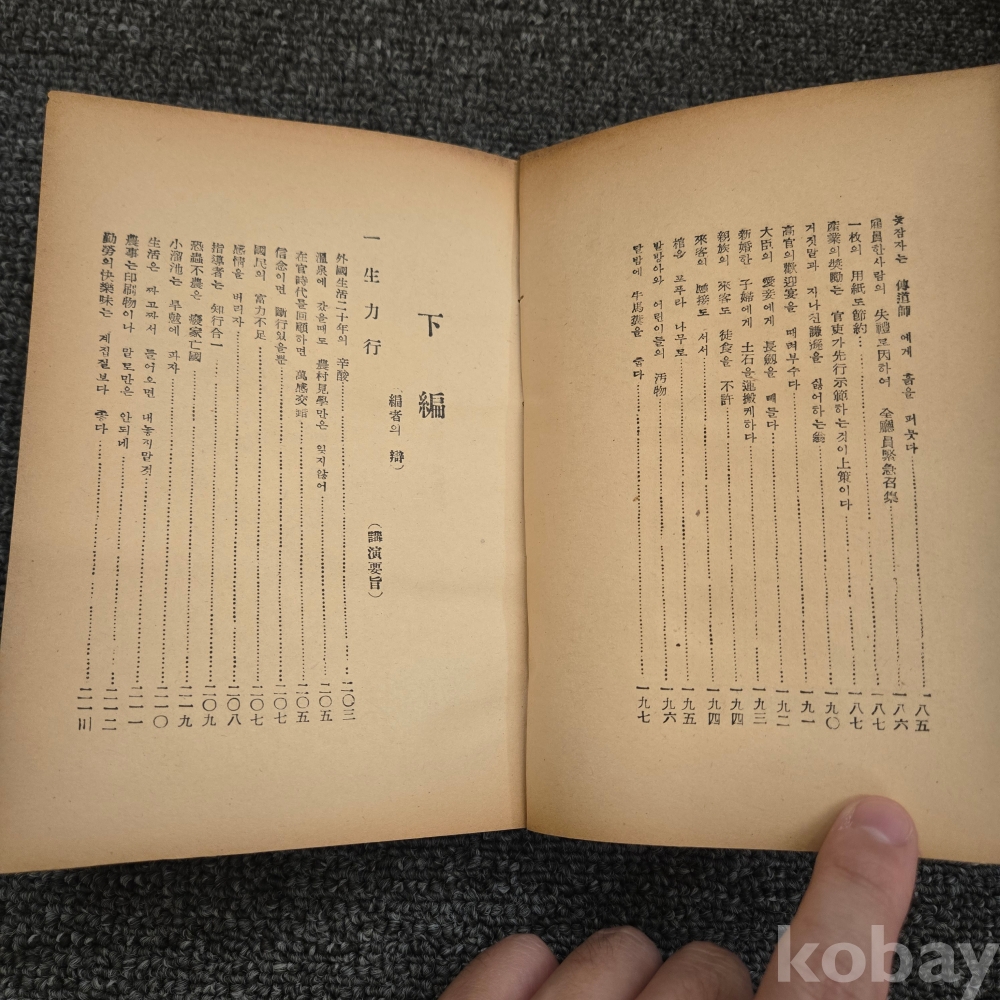 늦잠자는 傳道師에게 흙을 퍼붓다……一八五
雇員한사람의 失禮로因하여 全廳員緊急召集……一八六
一枚의 用紙도節約……一八七
産業의獎勵는 官吏가先行示範하는것이上策이다……一八七
거짓말과 지나친謙遜을 싫어하는……一九〇
高官의歡迎宴을 때려부수다……一九一
大臣의 愛妾에게 長劍을 빼들다……一九二
新婚한 子婦에게 土石을運搬케하다……一九三
親族의 來客도 徒食을 不許……一九四
來客의 應接도 서서……一九四
棺을 포푸라 나무로……一九五
발발아와 어린이들의 汚物……一九六
달밤에 牛馬糞을 줍다……一九七
下編
一 生力行 (講演要旨)
編者의 辯
外國生活二十年의 辛酸……二〇三
溫泉에 갔을때도 農村見學만은 잊지않어……二〇五
在官時代를回顧하면 萬感交……二〇五
信念이면 斷行있을뿐……二〇七
國民의 富力不足……二〇七
感情을 버리자……二〇八
指導者는 知行合一……二〇九
恐蟲不農은 廢家亡國……二一九
小溜池는 旱魃에 파자……二一〇
生活은 짜고짜서 들어오면 내놓지말것……二一一
農事는印刷物이나 말로만은 안되네……二一二
勤勞의快樂味는 계집질보다 좋다……二一三
kobay